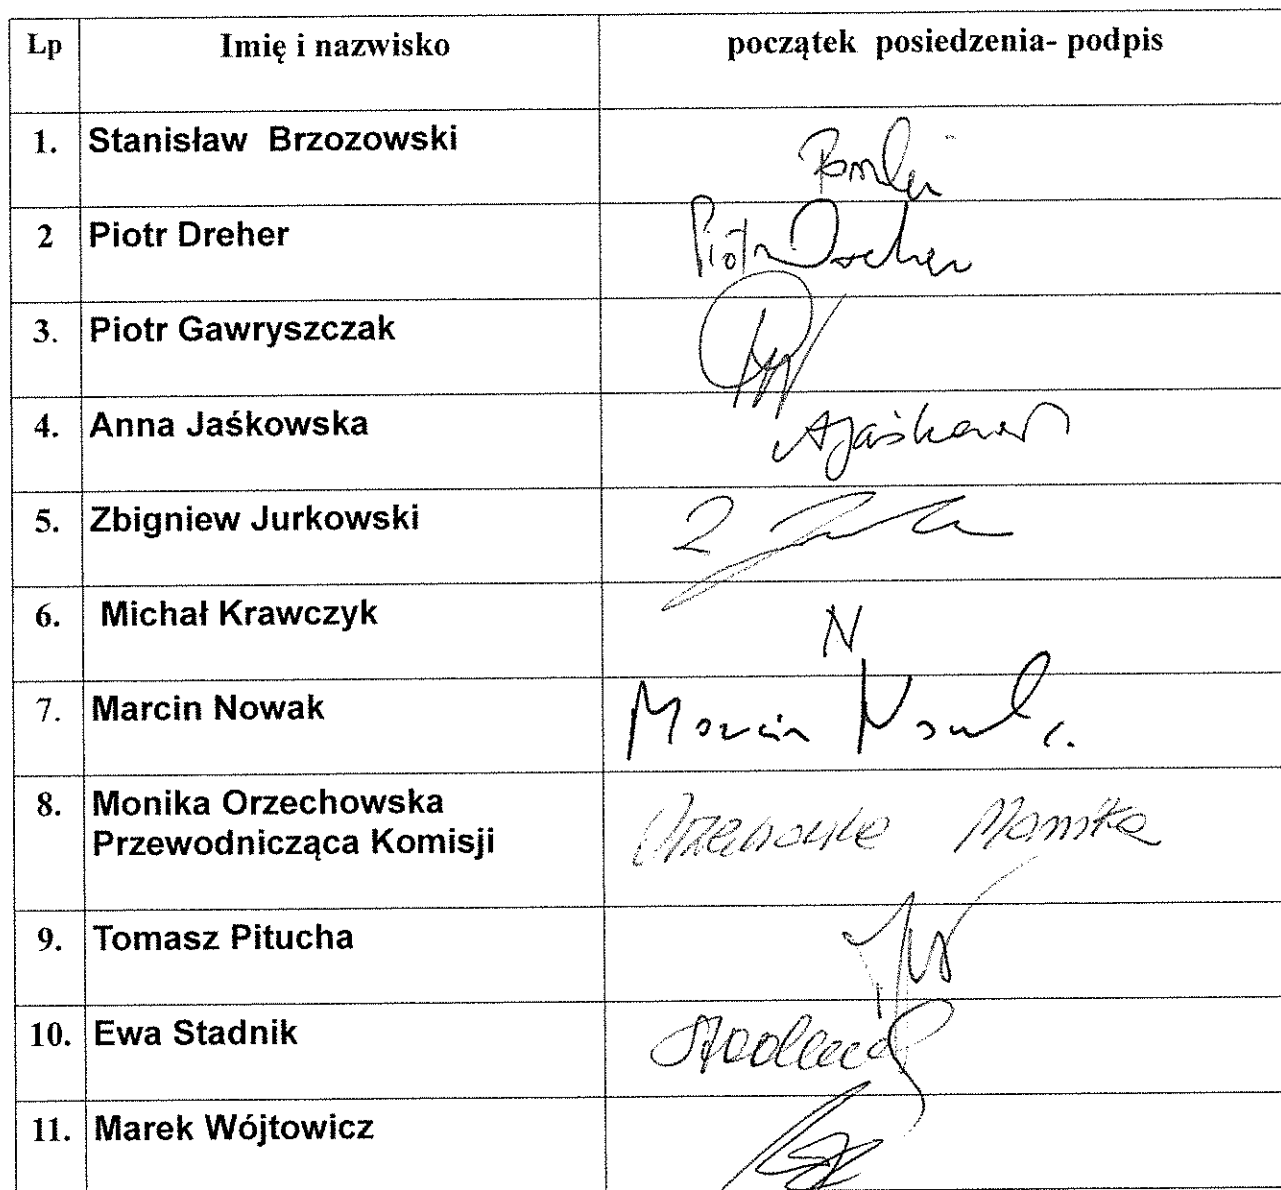 Lp Imię i nazwisko początek posiedzenia- podpis
1. Stanisław Brzozowski
2 Piotr Dreher Piotr Dreher
3. Piotr Gawryszczak
4. Anna Jaśkowska AJaśkowsk
5. Zbigniew Jurkowski
6. Michał Krawczyk N
7. Marcin Nowak Marcin Nowak
8. Monika Orzechowska
Przewodnicząca Komisji Orzechowska Monika
9. Tomasz Pitucha
10. Ewa Stadnik Stadnik
11. Marek Wójtowicz